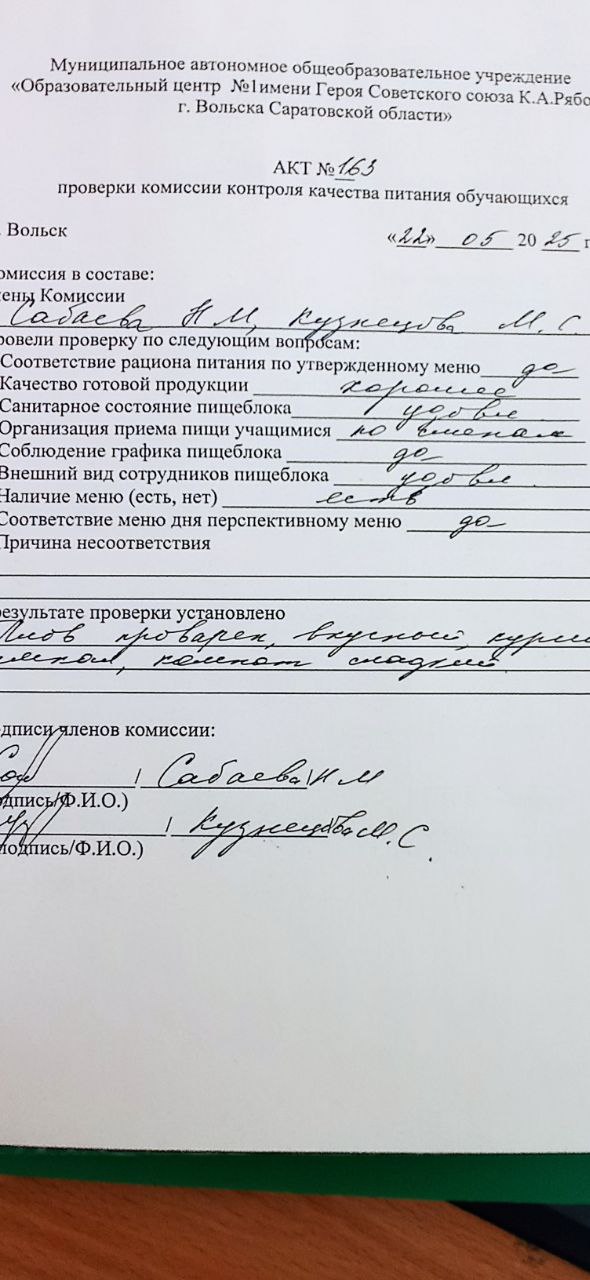 Муниципальное автономное общеобразовательное учреждение
«Образовательный центр №1имени Героя Советского союза К.А.Рябо
г. Вольска Саратовской области»
АКТ № 163
проверки комиссии контроля качества питания обучающихся
. Вольск «22» 05 20 25 г
омиссия в составе:
лены Комиссии
Сабаева Н М, Кузнецова М. С.
ровели проверку по следующим вопросам:
Соответствие рациона питания по утвержденному меню да
Качество готовой продукции хорошее
Санитарное состояние пищеблока удовл
Организация приема пищи учащимися по сменам
Соблюдение графика пищеблока да
Внешний вид сотрудников пищеблока удовл.
Наличие меню (есть, нет) есть
Соответствие меню дня перспективному меню да
Причина несоответствия
результате проверки установлено
Плов проварен, вкусный,
компот сладкий.
одписи членов комиссии:
/ Сабаева Н М
одпись/Ф.И.О.)
/ Кузнецова М. С.
подпись/Ф.И.О.)